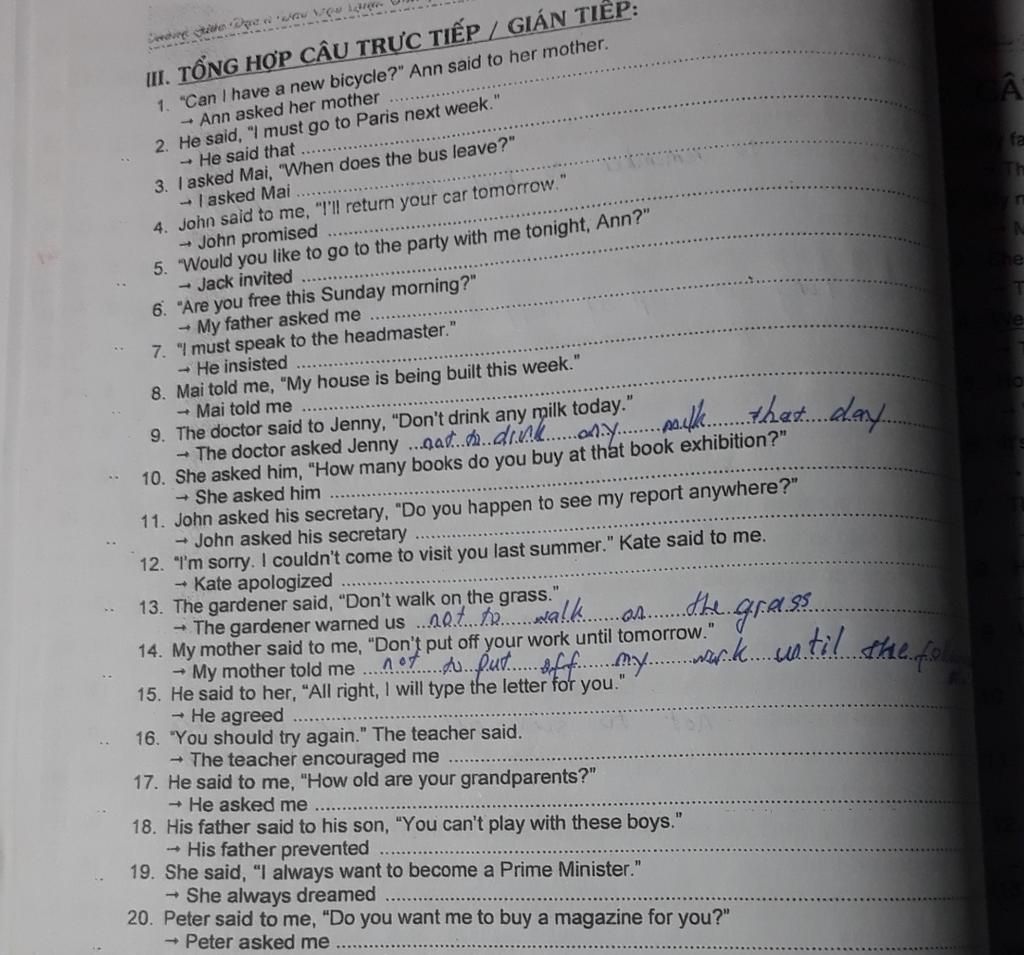 III. TỔNG HỢP CÂU TRỰC TIẾP / GIÁN TIẾP:
1. "Can I have a new bicycle?" Ann said to her mother.
→ Ann asked her mother
2. He said, "I must go to Paris next week."
→ He said that
3. I asked Mai, "When does the bus leave?"
→ I asked Mai
4. John said to me, "I'll return your car tomorrow."
→ John promised
5. "Would you like to go to the party with me tonight, Ann?"
→ Jack invited
6. "Are you free this Sunday morning?"
→ My father asked me
7. "I must speak to the headmaster."
→ He insisted
8. Mai told me, "My house is being built this week."
→ Mai told me
9. The doctor said to Jenny, "Don't drink any milk today."
→ The doctor asked Jenny not to drink any milk that day
10. She asked him, "How many books do you buy at that book exhibition?"
→ She asked him
11. John asked his secretary, "Do you happen to see my report anywhere?"
→ John asked his secretary
12. "I'm sorry. I couldn't come to visit you last summer." Kate said to me.
→ Kate apologized
13. The gardener said, "Don't walk on the grass."
→ The gardener warned us not to walk on the grass
14. My mother said to me, "Don't put off your work until tomorrow."
→ My mother told me not to put off my work until the
15. He said to her, "All right, I will type the letter for you."
→ He agreed
16. "You should try again." The teacher said.
→ The teacher encouraged me
17. He said to me, "How old are your grandparents?"
→ He asked me
18. His father said to his son, "You can't play with these boys."
→ His father prevented
19. She said, "I always want to become a Prime Minister."
→ She always dreamed
20. Peter said to me, "Do you want me to buy a magazine for you?"
→ Peter asked me